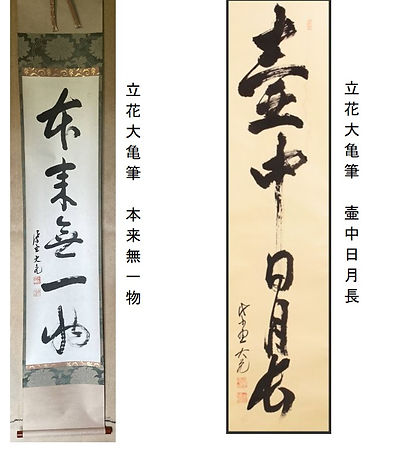 壷中日月長
大亀
立花大亀筆　壷中日月長
本来無一物
大亀
立花大亀筆　本来無一物